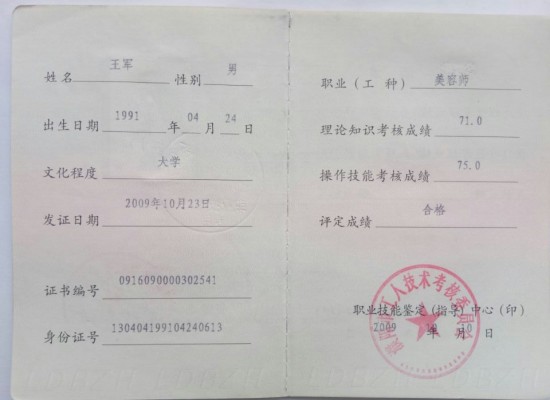 姓名 王军 性别 男
出生日期 1991 年 04 月 24 日
文化程度 大学
发证日期 2009年10月23日
证书编号 0916090000302541
身份证号 130404199104240613
职业（工 种） 美容师
理论知识考核成绩 71.0
操作技能考核成绩 75.0
评定成绩 合格
工人技术考核委员
职业技能鉴定（指导）中心（印）
2009 年 月 日